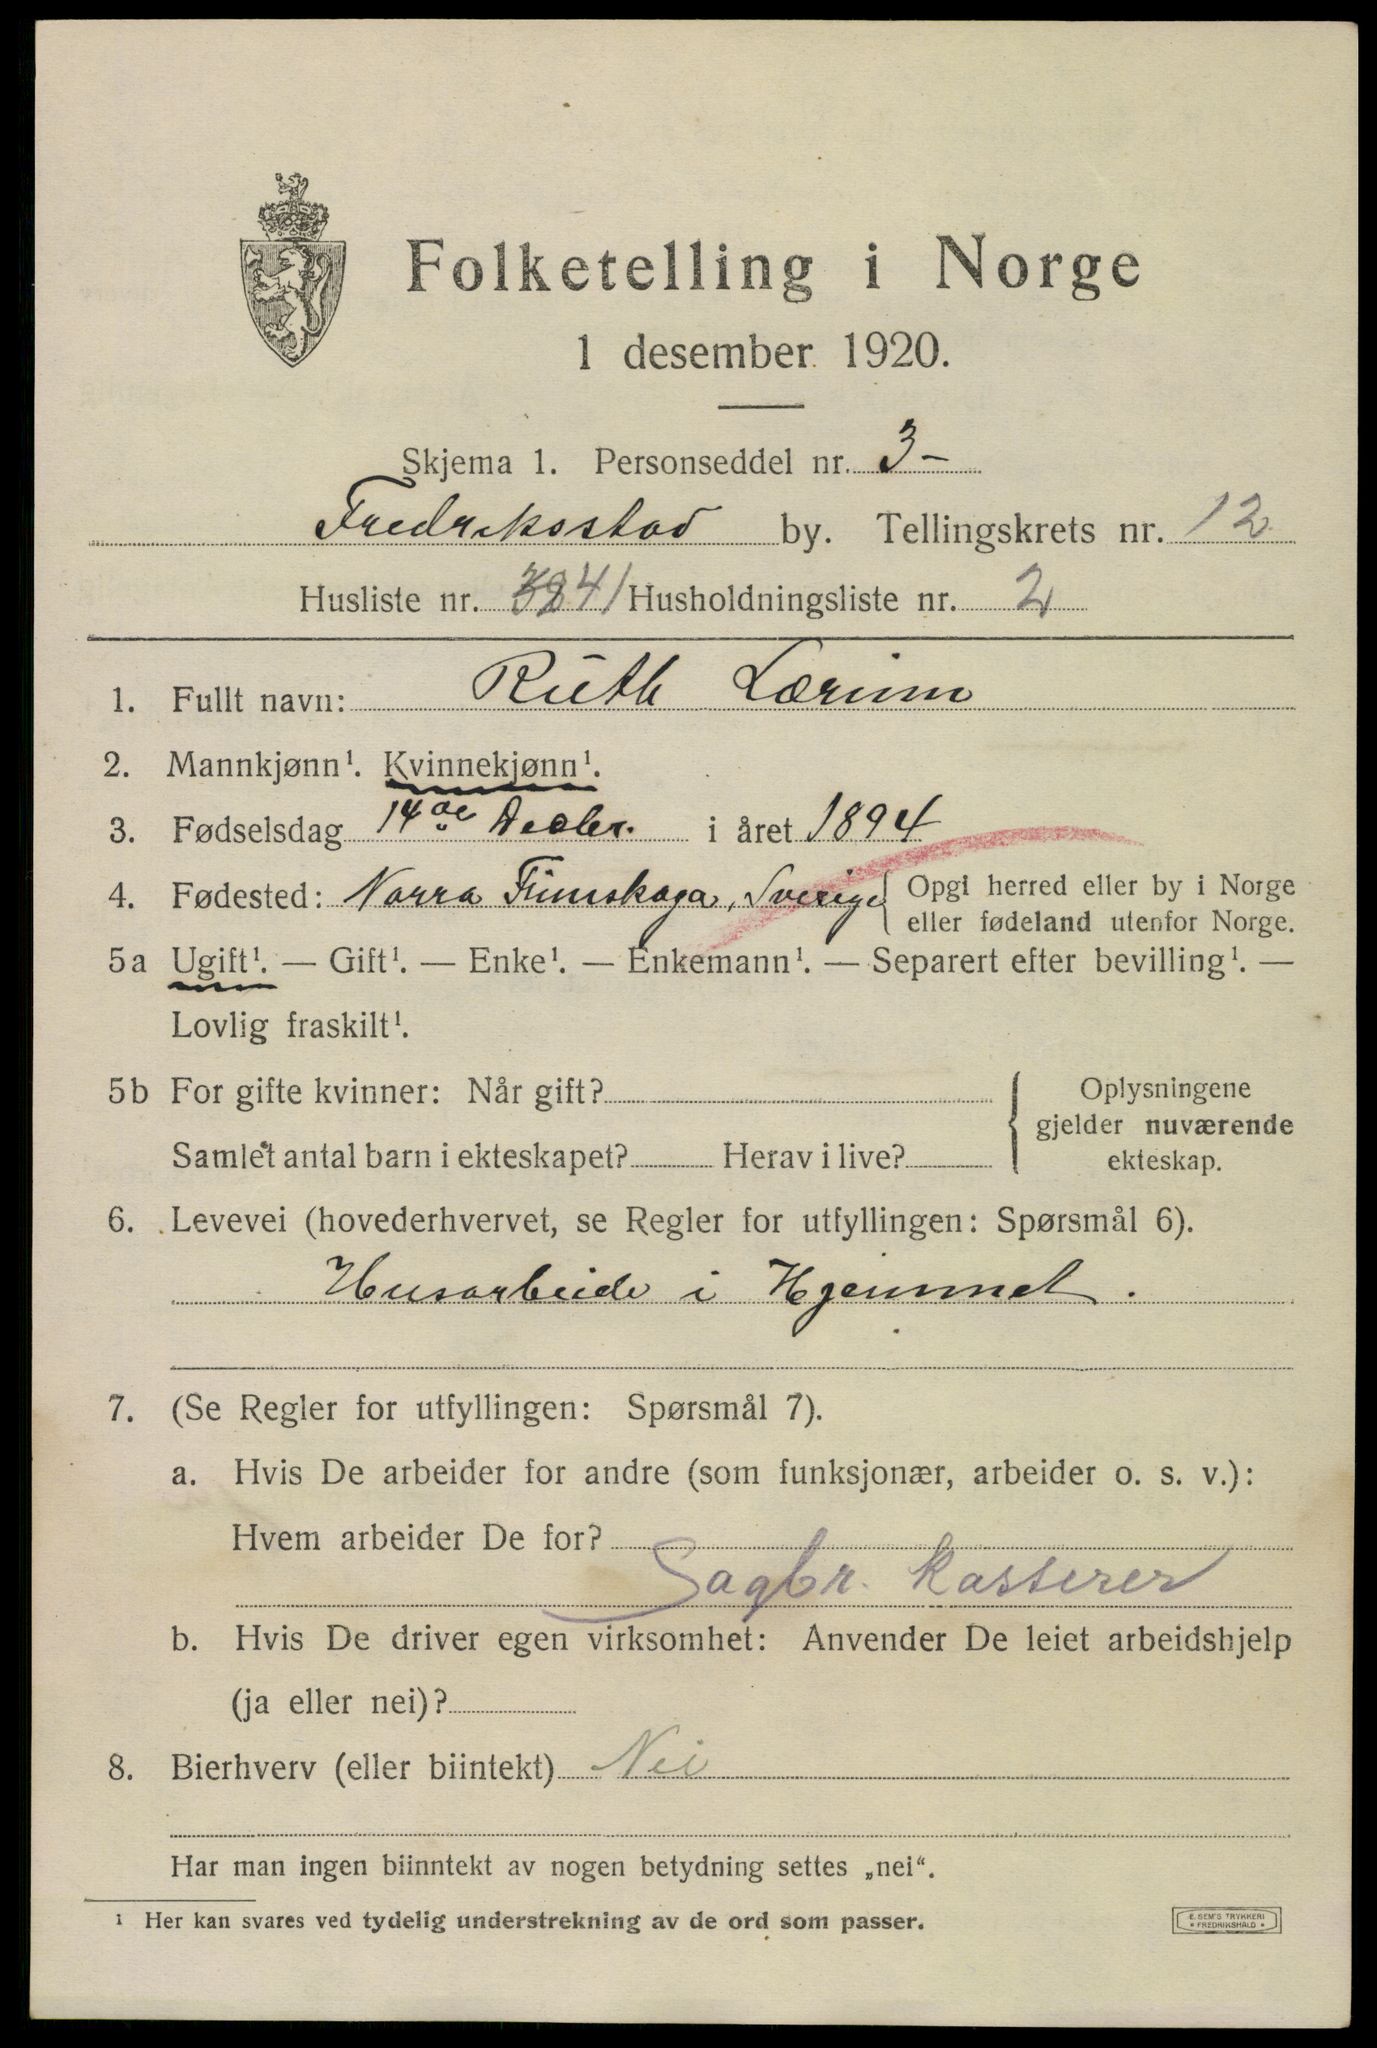 Folketelling i Norge
1 desember 1920.
Skjema 1. Personseddel nr. 3-
Fredriksstad by. Tellingskrets nr. 12
Husliste nr. 41 Husholdningsliste nr. 2
1. Fullt navn: Ruth Lærum
2. Mannkjønn¹. Kvinnekjønn¹.
3. Fødselsdag 14de Decbr. i året 1894
4. Fødested: Norra Finnskoga, Sverige { Opgi herred eller by i Norge
eller fødeland utenfor Norge.
5a Ugift¹. — Gift¹. — Enke¹. — Enkemann¹. — Separert efter bevilling¹. —
Lovlig fraskilt¹.
5b For gifte kvinner: Når gift?
Samlet antal barn i ekteskapet? Herav i live?
{ Oplysningene
gjelder nuværende
ekteskap.
6. Levevei (hovederhvervet, se Regler for utfyllingen: Spørsmål 6).
Husarbeide i Hjemmet.
7. (Se Regler for utfyllingen: Spørsmål 7).
a. Hvis De arbeider for andre (som funksjonær, arbeider o. s. v.):
Hvem arbeider De for?
Sagbr. kasserer
b. Hvis De driver egen virksomhet: Anvender De leiet arbeidshjelp
(ja eller nei)?
8. Bierhverv (eller biintekt) Nei
Har man ingen biinntekt av nogen betydning settes „nei“.
¹ Her kan svares ved tydelig understrekning av de ord som passer.
E. SEM'S TRYKKERI
* FREDRIKSHALD *